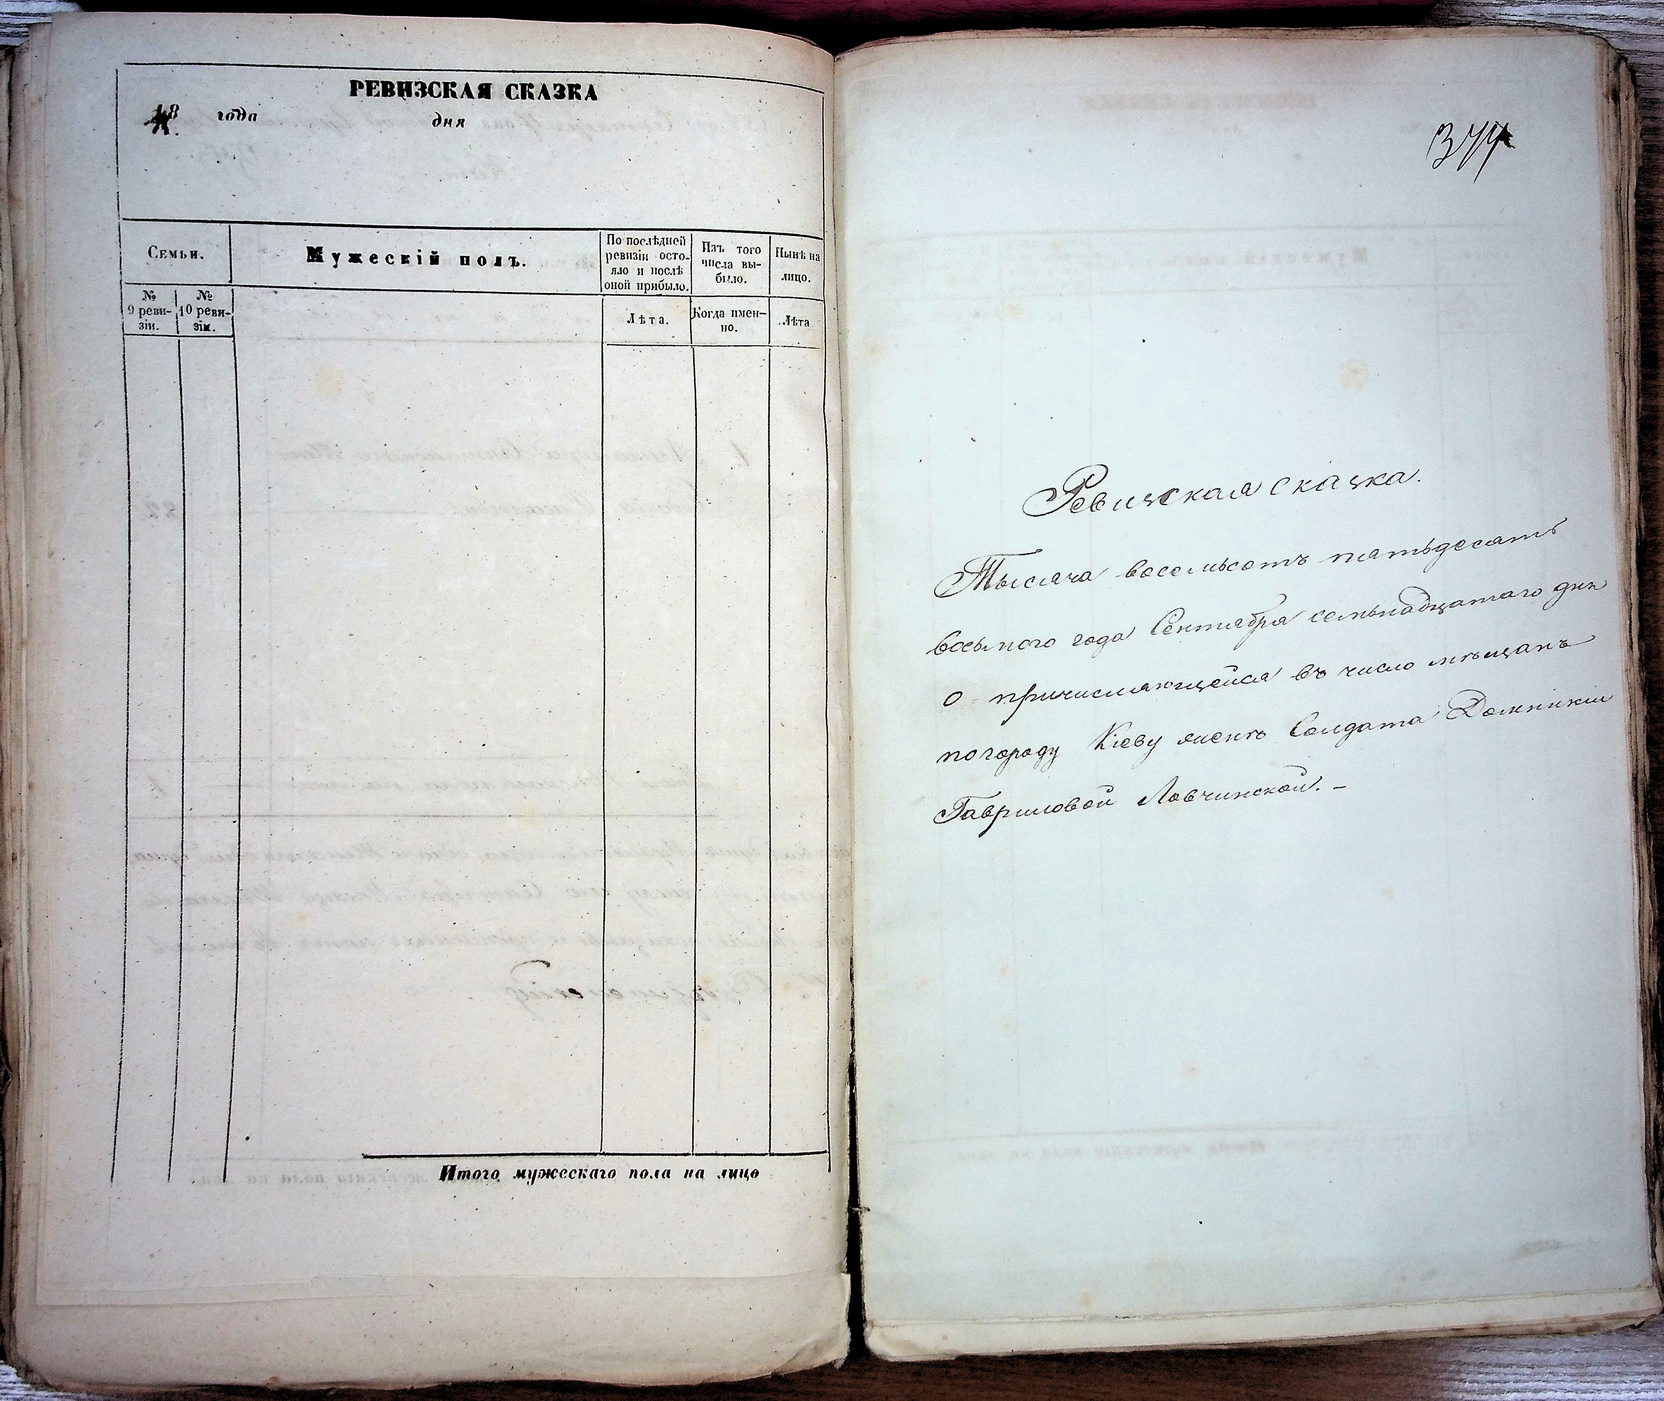 РЕВИЗСКАЯ СКАЗКА
18 года дня
Семьи.
Мужескій полъ.
По послѣдней
ревизіи состо-
яло и послѣ
оной прибыло.
Изъ того
числа вы-
было.
Нынѣ на
лицо.
№
9 реви-
зіи.
№
10 реви-
зіи.
Лѣта.
Когда имен-
но.
Лѣта
Итого мужескаго пола на лицо
Ревизская сказка.
Тысяча восемьсотъ пятьдесятъ
восьмого года Сентября семьнадцатого дня
о причисляющейся въ число мѣщанъ
по городу Кіеву женѣ Солдата Домникіи
Гавриловой Ловчинской. –